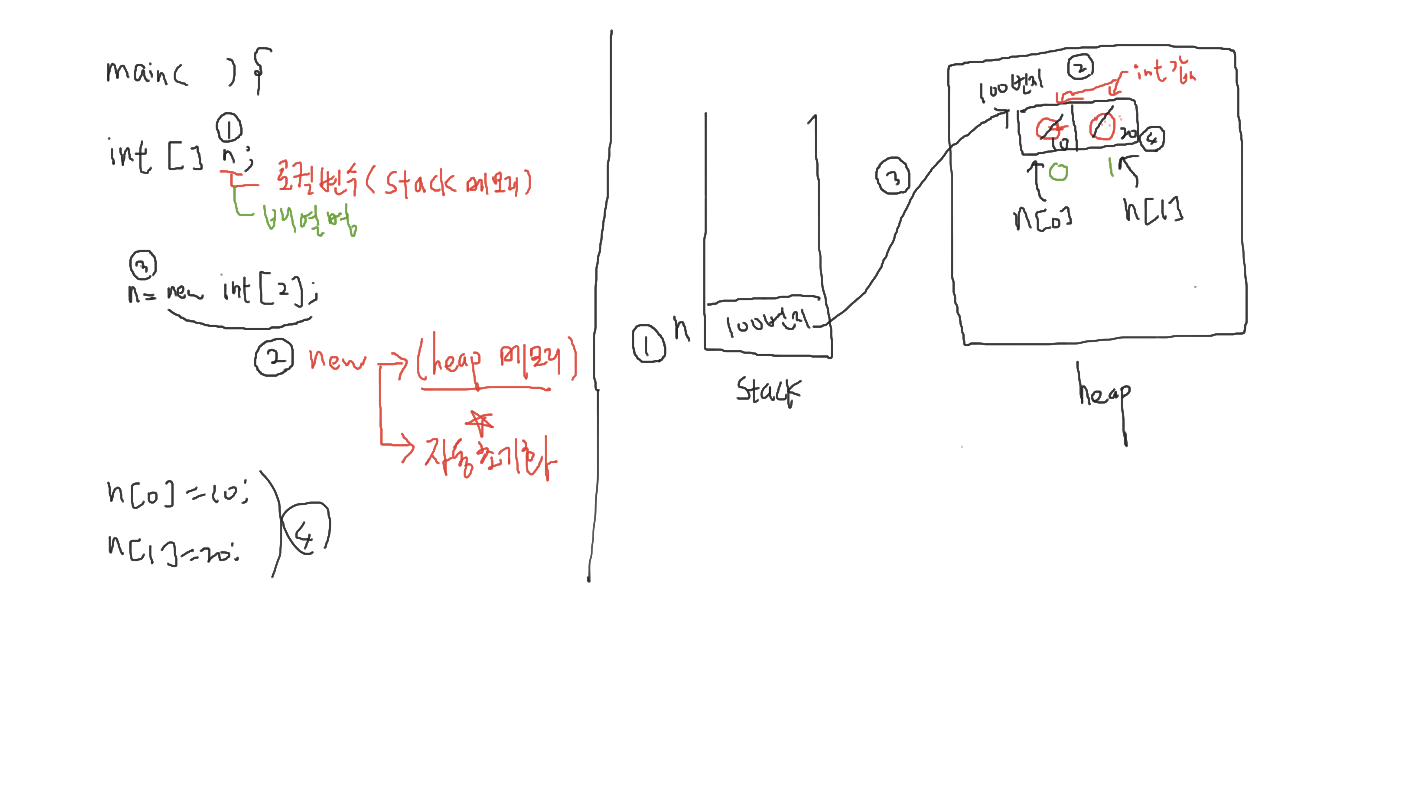 main( ) {
①
int [] n;
로컬변수(Stack 메모리)
배열명
③
n = new int [2];
② new → (heap 메모리)
☆
→ 자동초기화
n[0] = 10;
n[1] = 20;
④
① n
100번지
Stack
③
100번지
② int값
0 0
10 20 ④
0 1
n[0] n[1]
heap